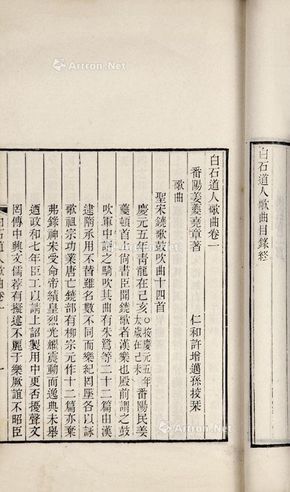 Artron.Net
白石道人歌曲目錄終
白石道人歌曲卷一
番陽姜夔堯章著
仁和許增邁孫挍栞
歌曲
聖宋鐃歌鼓吹曲十四首
慶元五年青龍在己亥按慶元五年太歲在己未番陽民姜
夔頓首上尚書臣聞鐃歌者漢樂也殿前謂之鼓
吹軍中謂之騎吹其曲有朱鷺等二十二篇由漢
逮隋承用不替雖名數不同而樂紀罔墜各以詠
歌祖宗功業唐亡鐃部有柳宗元作十二篇亦棄
弗錄神宋受命帝績皇烈光燿震動而逸典未舉
迺政和七年臣工以請上詔製用中更否擾聲文
罔傳中興文儒荐有擬述不麗于樂厥誼不昭臣
白石道人歌曲卷一
一
Artron.Net